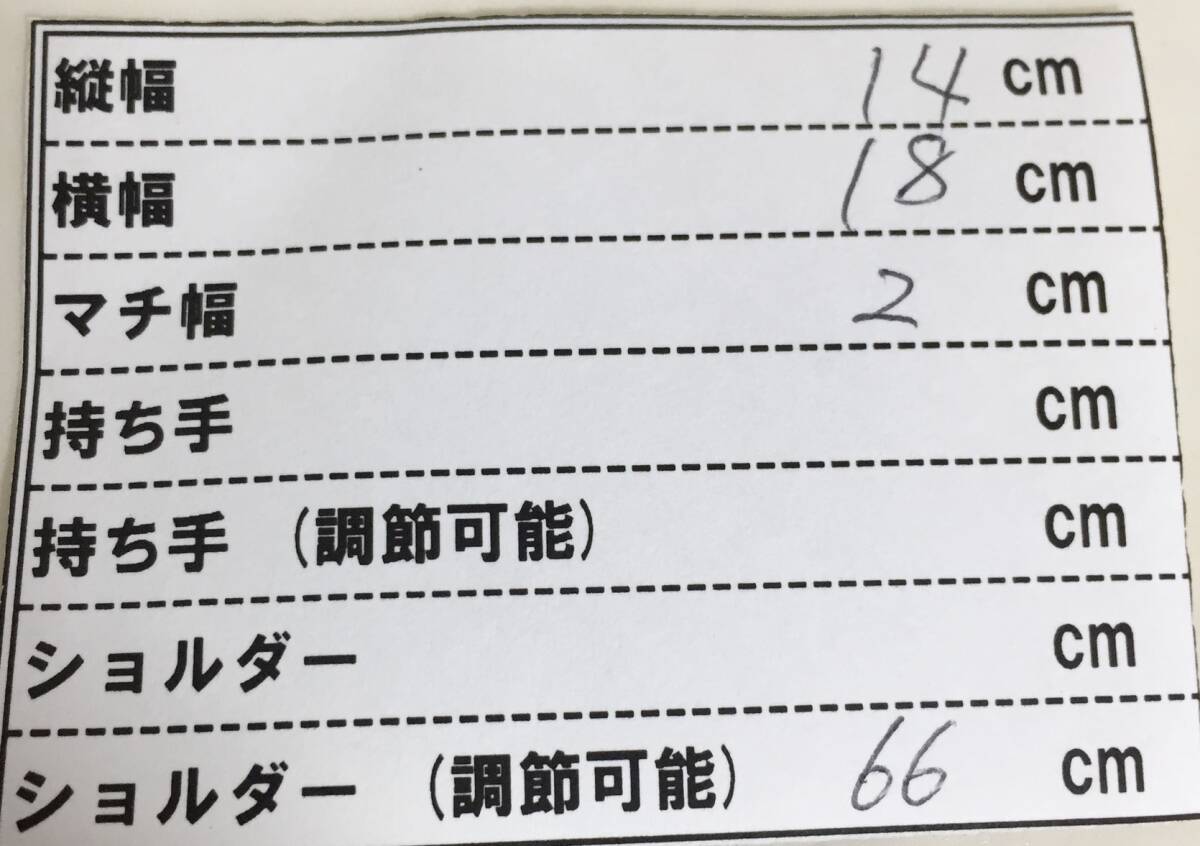 縦幅 14 cm
横幅 18 cm
マチ幅 2 cm
持ち手 cm
持ち手 (調節可能) cm
ショルダー cm
ショルダー (調節可能) 66 cm